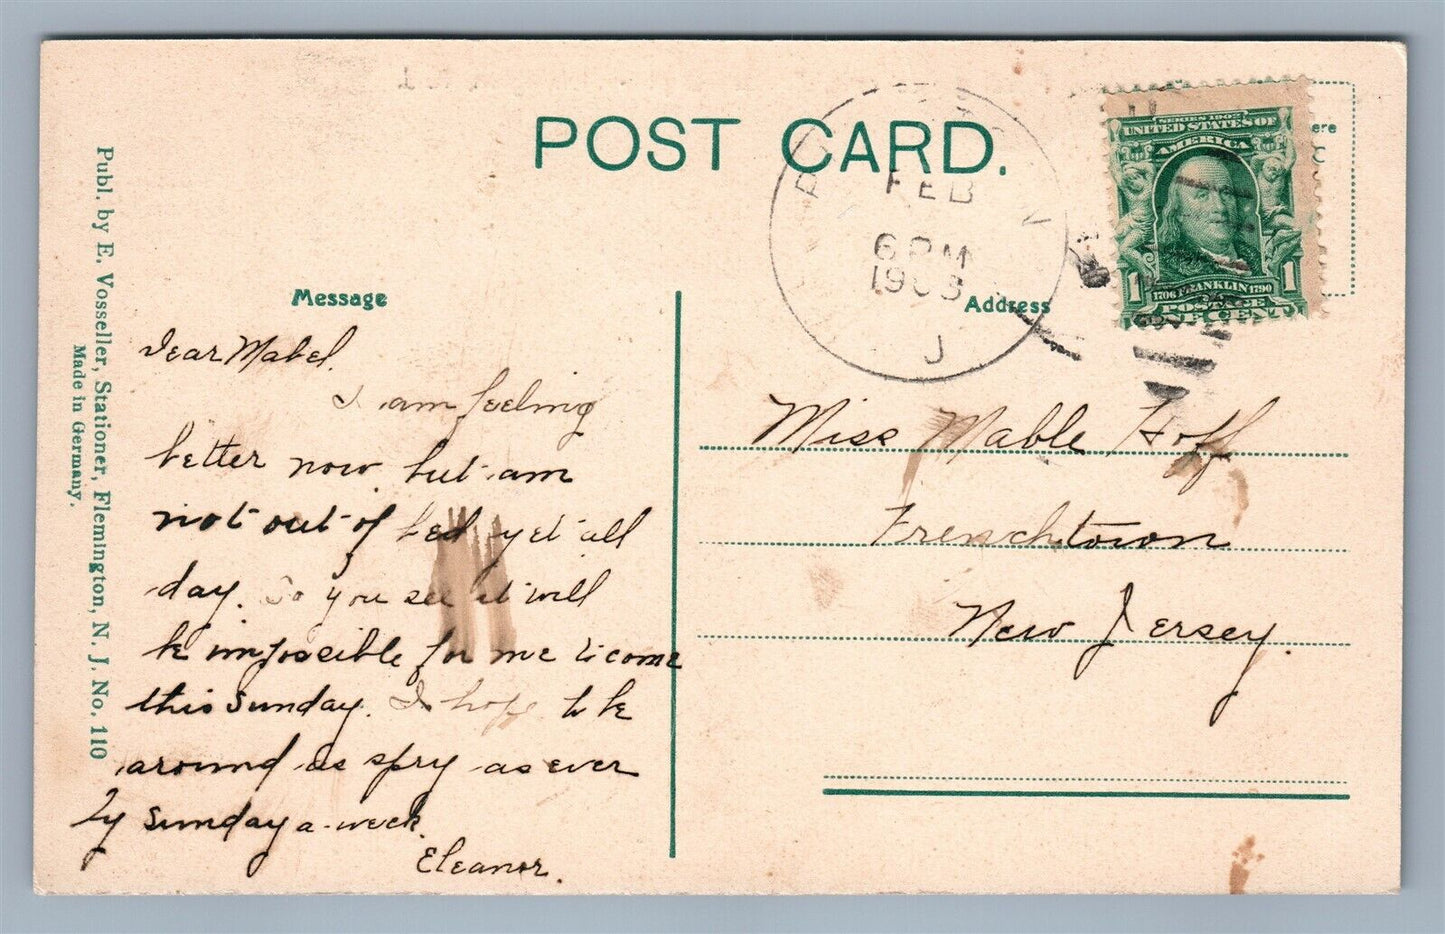 POST CARD.
FEB
6 PM
1908
J
SERIES 1902
UNITED STATES OF
AMERICA
1 1706 FRANKLIN 1790 1
POSTAGE
ONE CENT
ere
Message
Address
Dear Mabel.
I am feeling
better now, but am
not out of bed yet all
day. So you see it will
be impossible for me to come
this Sunday. I hope to be
around as spry as ever
by Sunday a-week.
Eleanor.
Miss Mable Hoff
Frenchtown
New Jersey.
Publ. by E. Vosseller, Stationer, Flemington, N. J. No. 110
Made in Germany.